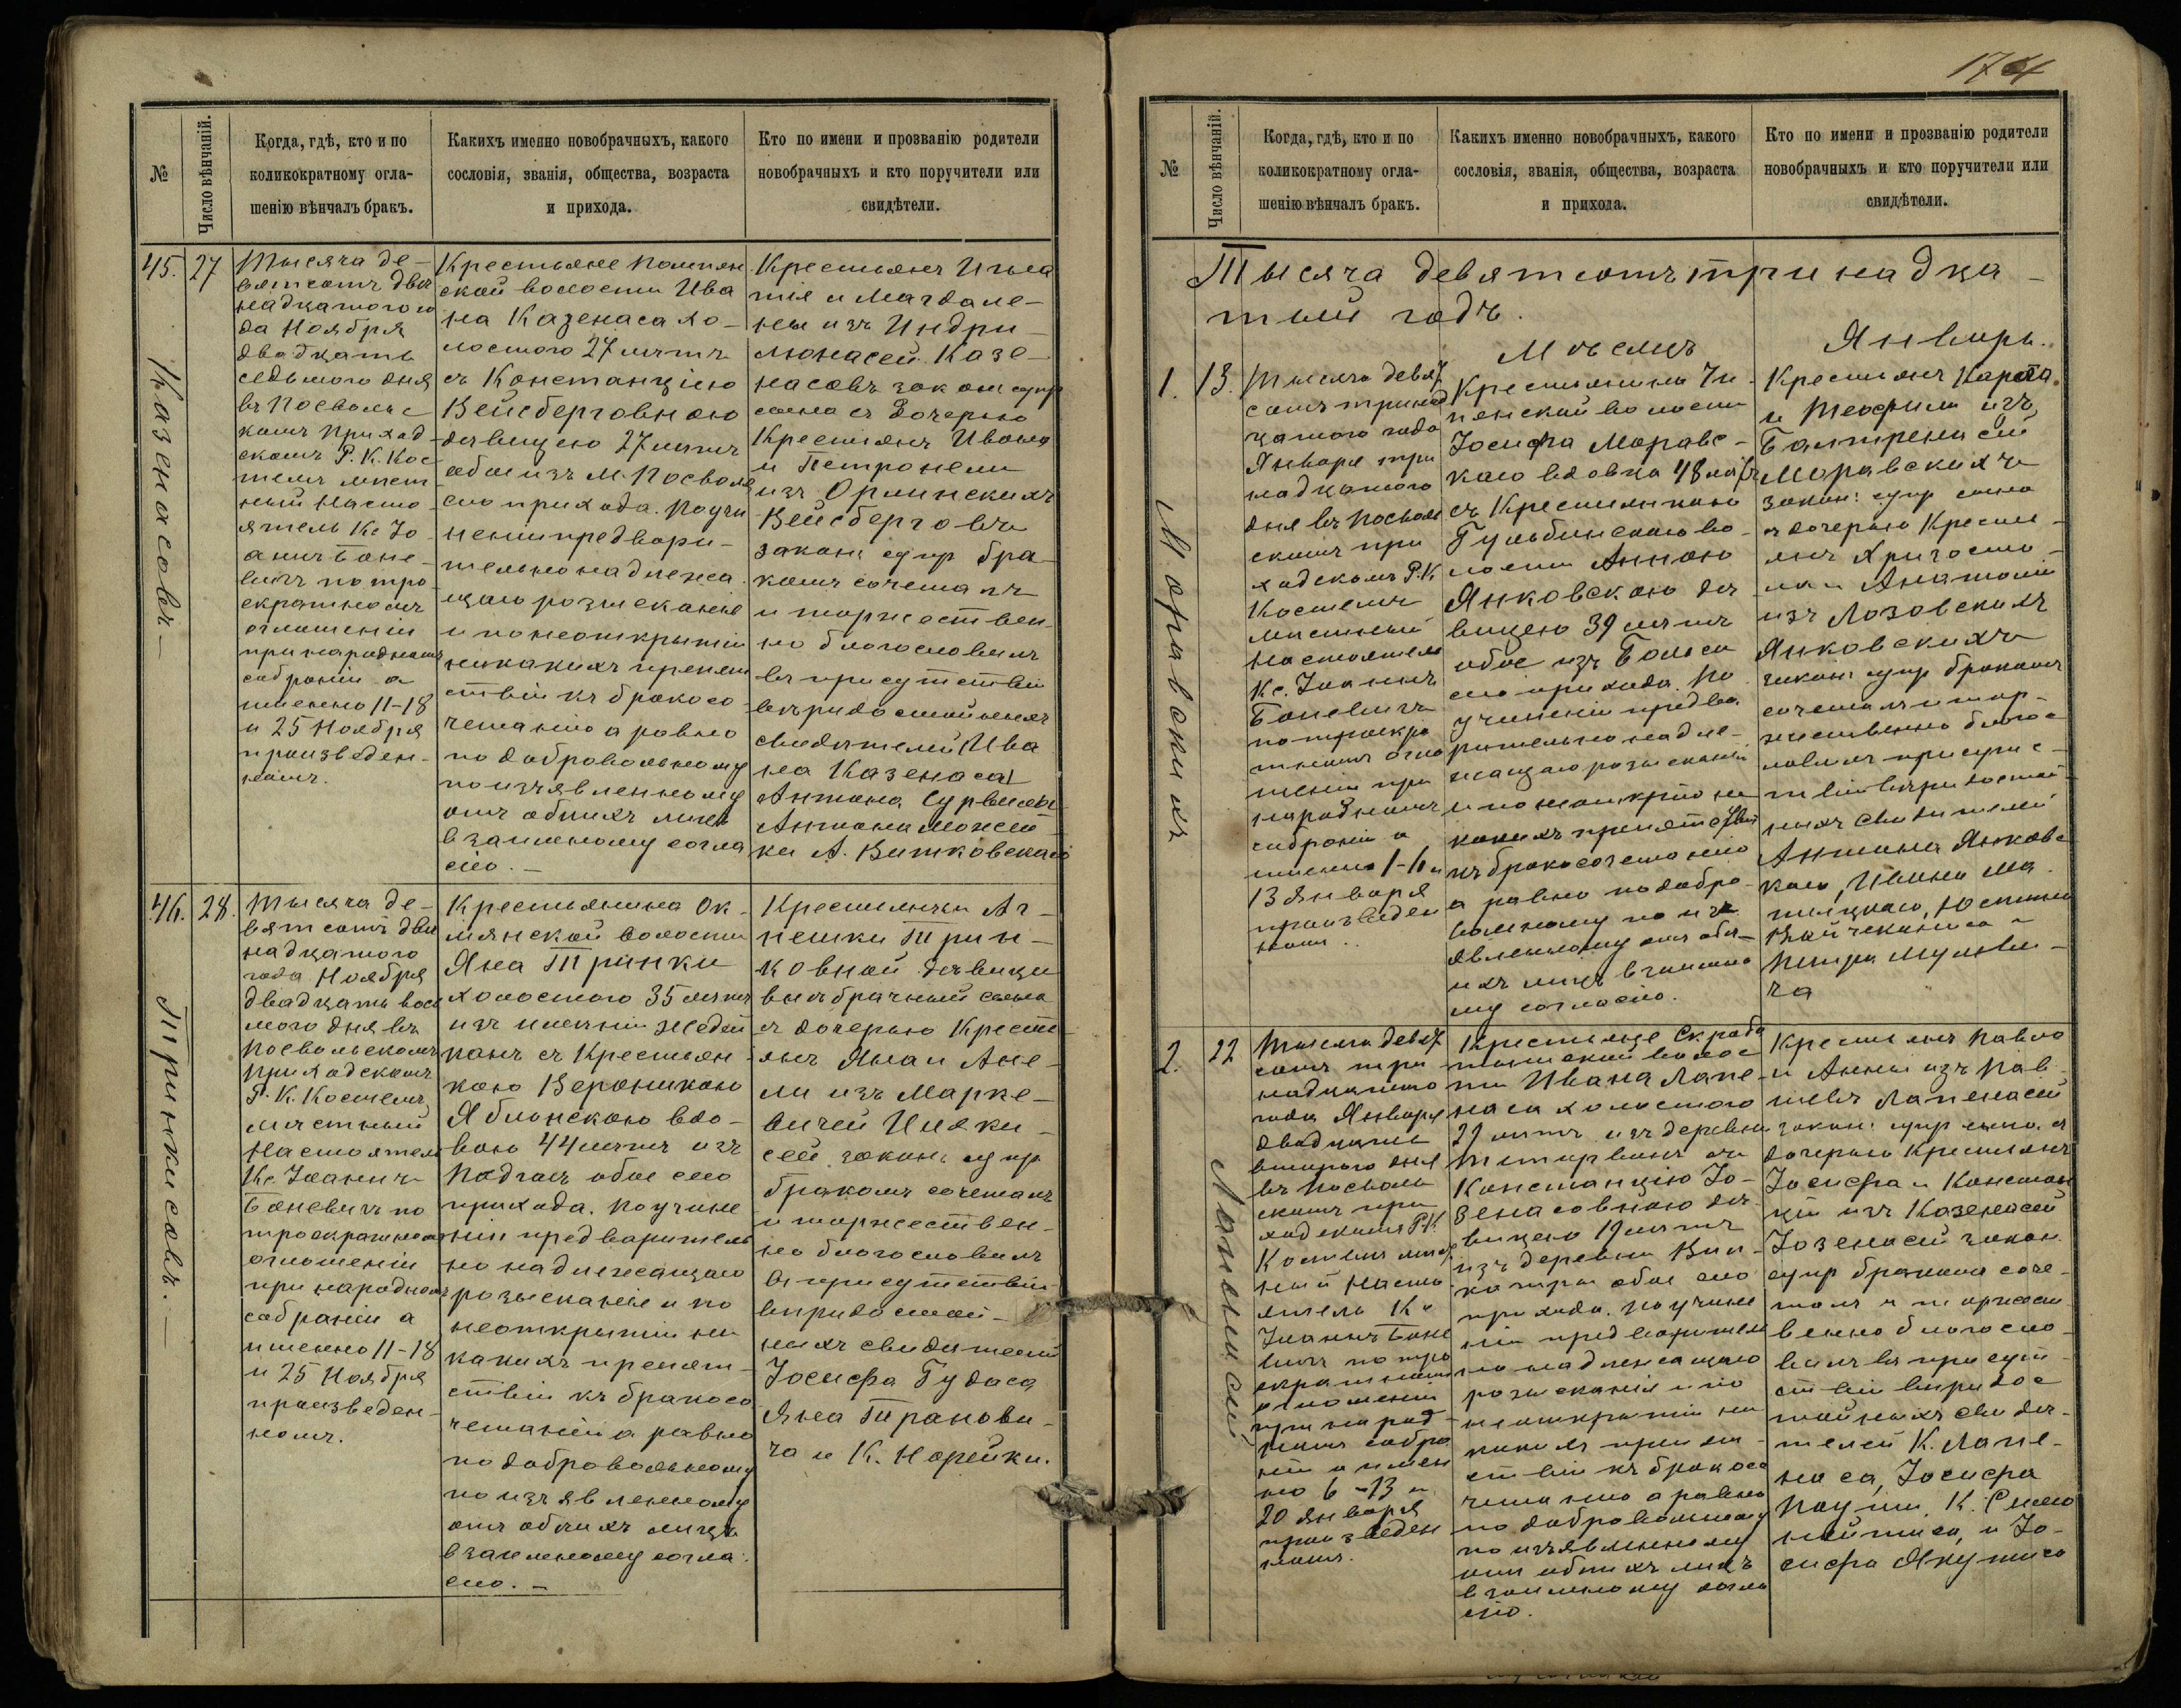 174
№
Число вѣнчаній.
Когда, гдѣ, кто и по
коликократному огла-
шенію вѣнчалъ бракъ.
Каких именно новобрачныхъ, какого
сословія, званія, общества, возраста
и прихода.
Кто по имени и прозванію родители
новобрачныхъ и кто поручители или
свидѣтели.
45.
27
Казенасовъ —
Тысяча де-
вятсотъ двѣ
надцатого го
да Ноября
двадцать
седьмого дня
въ Посволь-
комъ приход-
скомъ Р. К. Кос
телѣ мѣст-
ный Насто-
ятель Кс. Іо-
аннъ Бане-
вичъ по тро
екратномъ
оглашеніи
при народномъ
собраніи а
именно 11-18
и 25 Ноября
произведен-
номъ.
Крестьяне Помпян
ской волости Ива
на Казенаса хо-
лостого 27 лѣтъ
съ Констанціею
Вейсберговною
дѣвицею 27 лѣтъ
обое изъ м. Посволя
сего прихода. По учи
неніи предвари-
тельно надлежа
щаго розысканія
и по неоткрытіи
никакихъ препят
ствій къ бракосо
четанію а равно
по добровольному
по изъявленному
отъ обоихъ лицъ
взаимному согла
сію. —
Крестьянъ Игна
тія и Магдале-
ны изъ Индри-
люнасей Казе-
насовъ закон: супр
сына съ дочерью
Крестьянъ Ивана
и Петронели
изъ Орлинскихъ
Вейсберговъ
закон: супр бра-
комъ сочеталъ
и торжествен-
но благословилъ
въ присутствіи
вѣридостойныхъ
свидѣтелей Ива
на Казенаса
Антона Сурвилы
АнтонаМожей-
ки А. Витковскаго
46.
28.
Тринкисовъ. —
Тысяча де-
вятсотъ двѣ
надцатого
года Ноября
двадцать вось
мого дня въ
Посвольскомъ
приходскомъ
Р. К. Костелѣ
мѣстный
Настоятель
Кс. Іоаннъ
Баневичъ по
троекратномъ
оглашеніи
при народномъ
собраніи а
именно 11-18
и 25 Ноября
произведен-
номъ.
Крестьянина Ок-
мянской волости
Яна Тринки
холостого 35 лѣтъ
изъ имѣнія Жедей
канъ съ Крестьян-
кою Вероникою
Яблонскою вдо-
вою 44 лѣтъ изъ
обое сего
прихода. По учине
ніи предваритель
но надлежащаго
розысканія и по
неоткрытіи ни
какихъ препят-
ствій къ бракосо
четанію а равно
по добровольному
по изъявленному
отъ обоихъ лицъ
взаимному согла-
сію. —
Крестьянки Аг-
нешки Трин-
ковной дѣвицы
внѣбрачный сына
съ дочерью Кресть-
янъ Яна и Ане-
ли изъ Марке-
вичей
закон: супр
бракомъ сочеталъ
и торжествен-
но благословилъ
въ присутствіи
вѣридостой-
ныхъ свидѣтелей
Іосифа Гудаса
Яна Трановы-
ча и К. Норейки.
№
Число вѣнчаній.
Когда, гдѣ, кто и по
коликократному огла-
шенію вѣнчалъ бракъ.
Какихъ именно новобрачныхъ, какого
сословія, званія, общества, возраста
и прихода.
Кто по имени и прозванію родители
новобрачныхъ и кто поручители или
свидѣтели.
Тысяча девятсотъ тринадца-
тый годъ.
Мѣсяцъ Январь.
1.
13.
Моравскихъ
Тысяча девят
сотъ тринад
цатого года
Января три
надцатого
дня въ Посволь
скомъ при
ходскомъ Р. К
Костелѣ
мѣстный
Настоятель
Кс. Іоаннъ
Баневичъ
по троекра
тномъ огла
шеніи при
народномъ
собраніи а
именно 1-6 и
13 Января
произведен
номъ.
Крестьянина
волости
Іосифа Моравс-
каго вдовца 48 лѣтъ
съ Крестьянкою
Гульбинскою во-
лости Анною
Янковскою дѣ
вицею 39 лѣтъ
обое изъ
сего прихода. По
учиненіи предва
рительно надле-
жащаго розысканія
и по неоткрытіи ни
какихъ препятствій
къ бракосочетанію
а равно по добро-
вольному по изъ
явленному отъ обо-
ихъ лицъ взаимно
му согласію.
Крестьянъ Карола
и Теофили изъ
Балтренасей
Моравскихъ
закон: супр сына
съ дочерью Кресть-
янъ
изъ Лозовскихъ
Янковскихъ
закон: супр бракомъ
сочеталъ и тор-
жественно благос-
ловилъ присутс-
твіи вѣридостой-
ныхъ свидѣтелей
Антона Янковс-
каго, Ивана
Юстина
Петра
ча
2.
22
Лапенасей
Тысяча девят
сотъ три
надцатого
года Января
двадцать
второго дня
въ Посволь
скомъ при
ходскомъ Р.К.
Костелѣ мѣст
ный Насто
ятель Кс
Іоаннъ Бане
вичъ по тро
екратномъ
оглашеніи
при народ-
номъ собра
ніи а имен
но 6-13 и
20 января
произведен
номъ.
Крестьяне Скраба
тишской волос
ти Ивана Лапе-
наса холостого
изъ деревни
съ
Констанціею Іо-
зенасовною дѣ-
вицею 19 лѣтъ
изъ деревни
обое сего
прихода. По учине
ніи предваритель
но надлежащаго
розысканія и по
неоткрытіи ни
какихъ препят-
ствій къ бракосо
четанію а равно
по добровольному
по изъявленному
отъ обоихъ лицъ
взаимному согла
сію.
Крестьянъ Павла
и Анны изъ
Лапенасей
закон: супр сына съ
дочерью Крестьянъ
Іосифа и Констан
ціи изъ Казенасей
Іозенасей закон
супр бракомъ соче-
талъ и торжест
венно благосло-
вилъ въ присут-
ствіи вѣридос
тойныхъ свидѣ-
телей К. Лапе-
наса, Іосифа
К.
и Іо-
сифа Якутиса